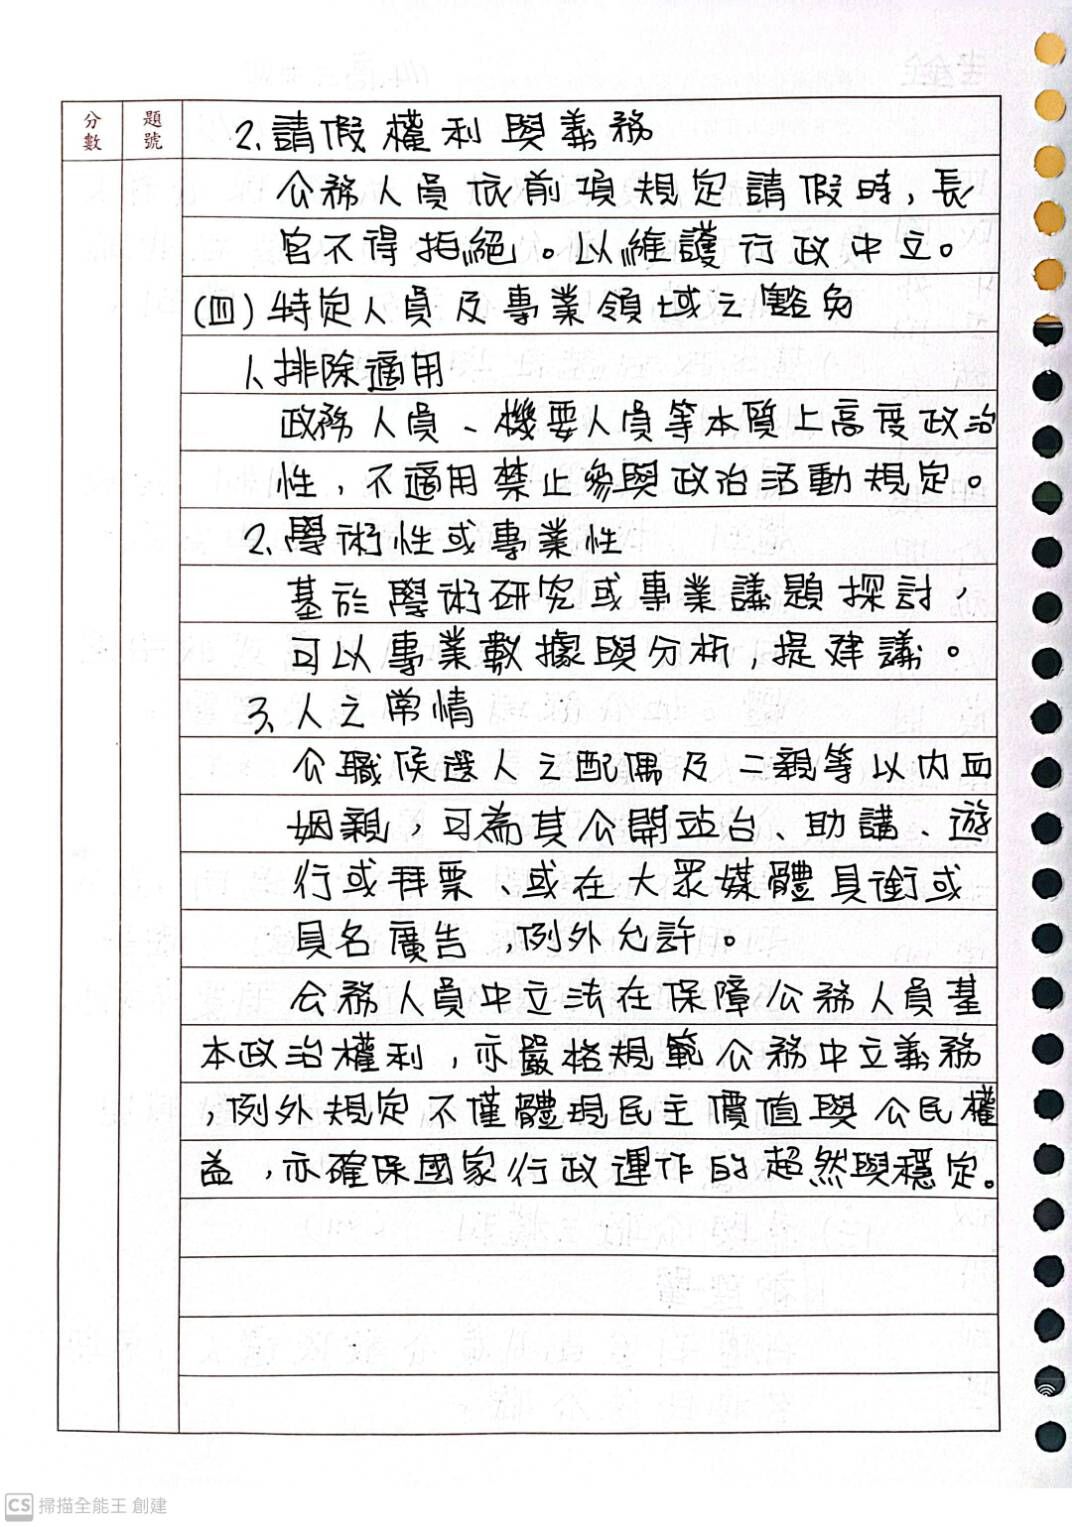 分數
題號
2.請假權利與義務
公務人員依前項規定請假時,長
官不得拒絕。以維護行政中立。
(四)特定人員及專業領域之豁免
1.排除適用
政務人員、機要人員等本質上高度政治
性,不適用禁止參與政治活動規定。
2.學術性或專業性
基於學術研究或專業議題探討,
可以專業數據與分析,提建議。
3.人之常情
公職候選人之配偶及二親等以內血
姻親,可為其公開站台、助講、遊
行或拜票、或在大眾媒體具銜或
具名廣告,例外允許。
公務人員中立法在保障公務人員基
本政治權利,亦嚴格規範公務中立義務
,例外規定不僅體現民主價值與公民權
益,亦確保國家行政運作的超然與穩定。
CS 掃描全能王 創建